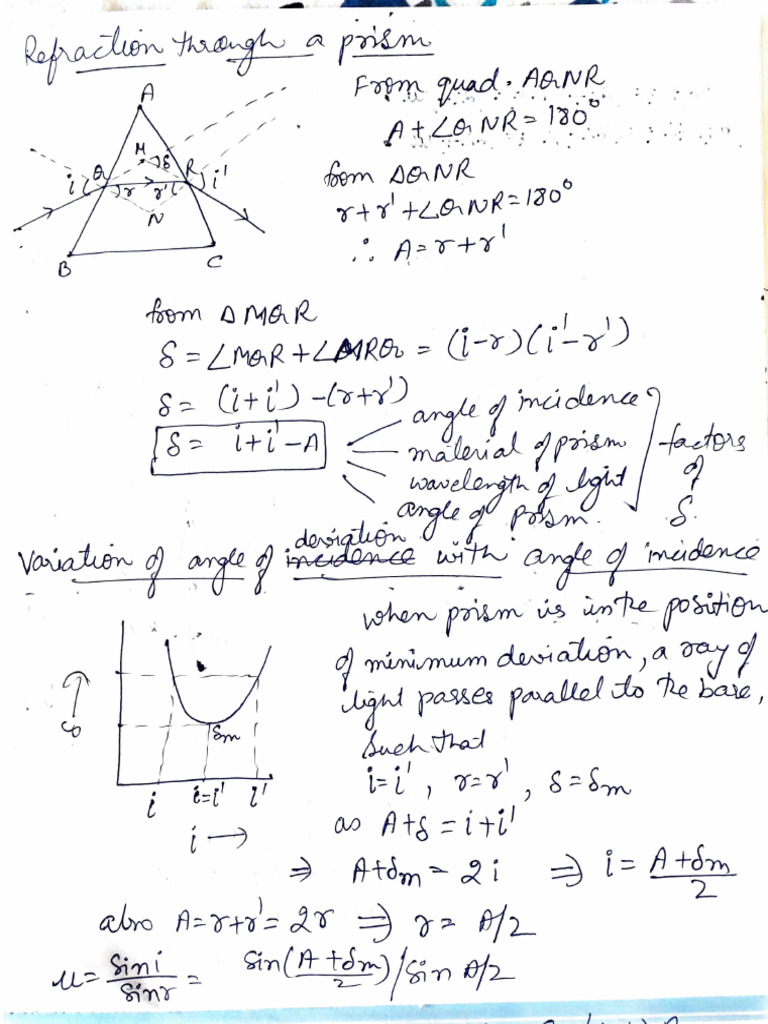 Refraction through a prism
From quad. AQNR
A + ∠QNR = 180°
from ΔQNR
r + r' + ∠QNR = 180°
∴ A = r + r'
A
M
δ
i
Q
R
i'
r
r'
N
B
C
from ΔMQR
δ = ∠MQR + ∠MRQ = (i-r)(i'-r')
δ = (i+i') - (r+r')
δ = i+i'-A
angle of incidence
material of prism
wavelength of light
angle of prism.
factors
of
δ.
deviation
Variation of angle of incidence with angle of incidence
when prism is in the position
of minimum deviation, a ray of
light passes parallel to the base,
such that
i=i', r=r', δ=δm
as A+δ = i+i'
δ
δm
i
i=i'
i'
i →
⇒ A+δm = 2i ⇒ i = (A+δm)/2
also A = r+r' = 2r ⇒ r = A/2
μ = sin i / sin r = sin((A+δm)/2) / sin A/2